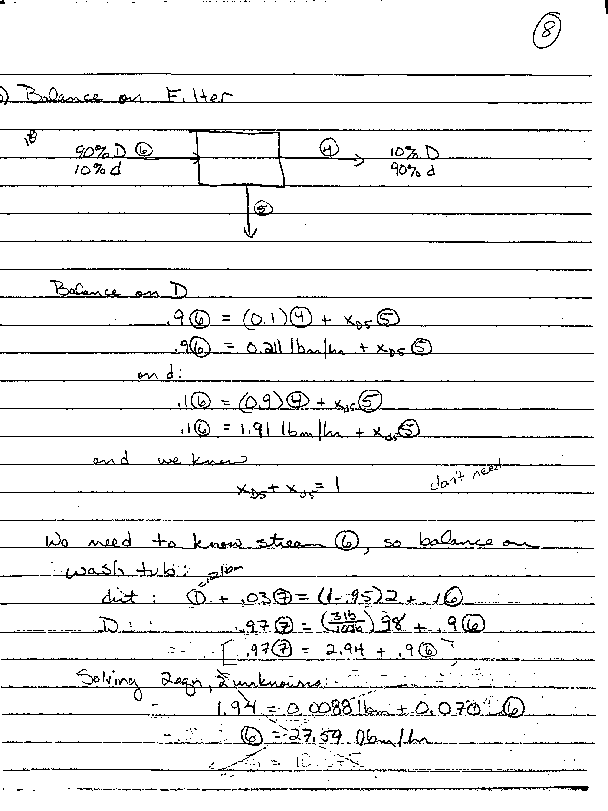 ⑧
) Balance on Filter
90% D ⑥ ④ 10% D
10% d 90% d
⑤
Balance on D
.9⑥ = (0.1)④ + x_D5⑤
.9⑥ = 0.211 lbm/hr + x_D5⑤
on d:
.1⑥ = (0.9)④ + x_d5⑤
.1⑥ = 1.91 lbm/hr + x_d5⑤
and we know
x_D5 + x_d5 = 1
don't need
We need to know stream ⑥, so balance on
wash tub:
dirt: ① + .03⑦ = (1-.95)2 + .1⑥
D: .97⑦ = ( ) 98 + .9⑥
[.97⑦ = 2.94 + .9⑥]
Solving 2 eqn, 2 unknowns:
1.94 = 0.0088 lbm + 0.070 ⑥
⑥ = 27.59 lbm/hr